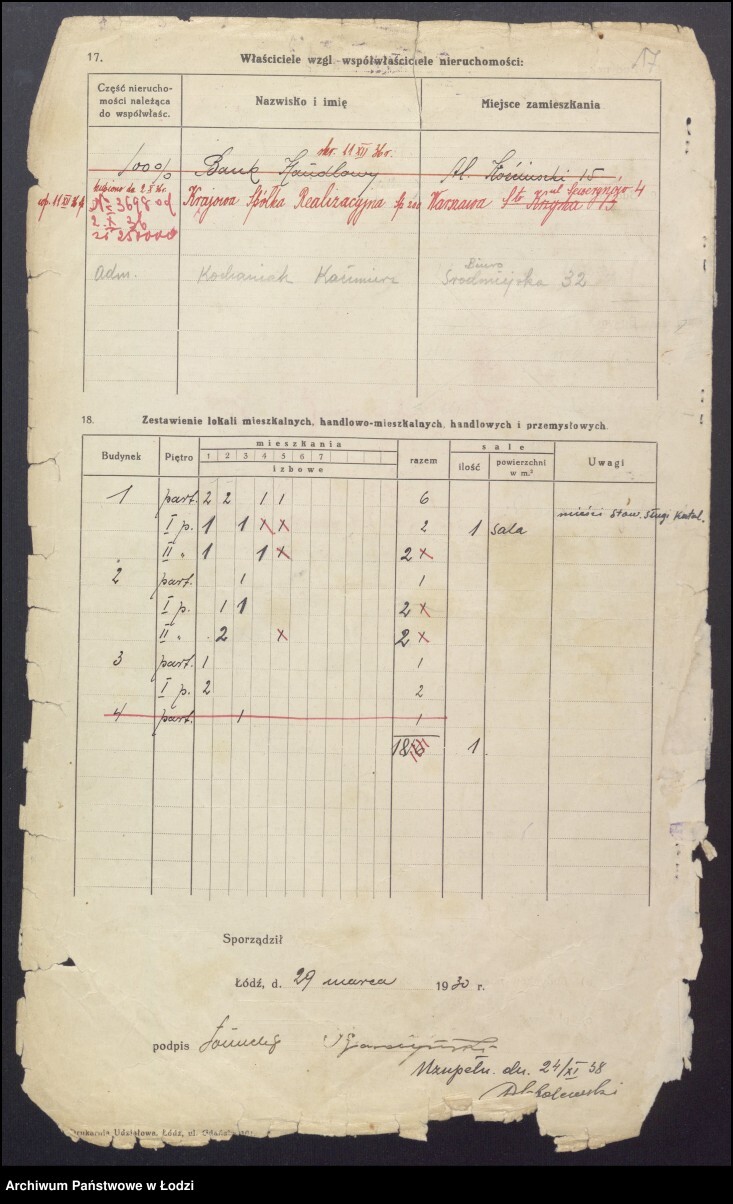 17. Właściciele wzgl. współwłaściciele nieruchomości: 17
Część nierucho-
mości należąca
do współwłaśc.
Nazwisko i imię
Miejsce zamieszkania
skr. 11 XII 36 r.
100% Bank Handlowy Al. Kościuszki 15
kupiono dn. 2.X 36r. ul. 4
Krajowa Spółka Realizacyjna Sp z oo Warszawa
№ 3698 od
2 X 36
25000
Biuro
adm. Kochaniak Kazimierz Śródmiejska 32
18. Zestawienie lokali mieszkalnych, handlowo-mieszkalnych, handlowych i przemysłowych.
Budynek Piętro mieszkania razem sale Uwagi
1 2 3 4 5 6 7
izbowe
ilość powierzchni
w m.²
1 part. 2 2 1 1 6
mieści Stow. Sług Katol.
I p. 1 1 x x 2 1 sala
II „ 1 1 x 2 x
2 part. 1 1
I p. 1 1 2 x
II „ 2 x 2 x
3 part. 1 1
I p. 2 2
4 part. 1 1
18 1
Sporządził
Łódź, d. 29 marca 1930 r.
podpis
Uzupełn. dn. 24/XI 38
Drukarnia Udziałowa, Łódź, ul.
Archiwum Państwowe w Łodzi